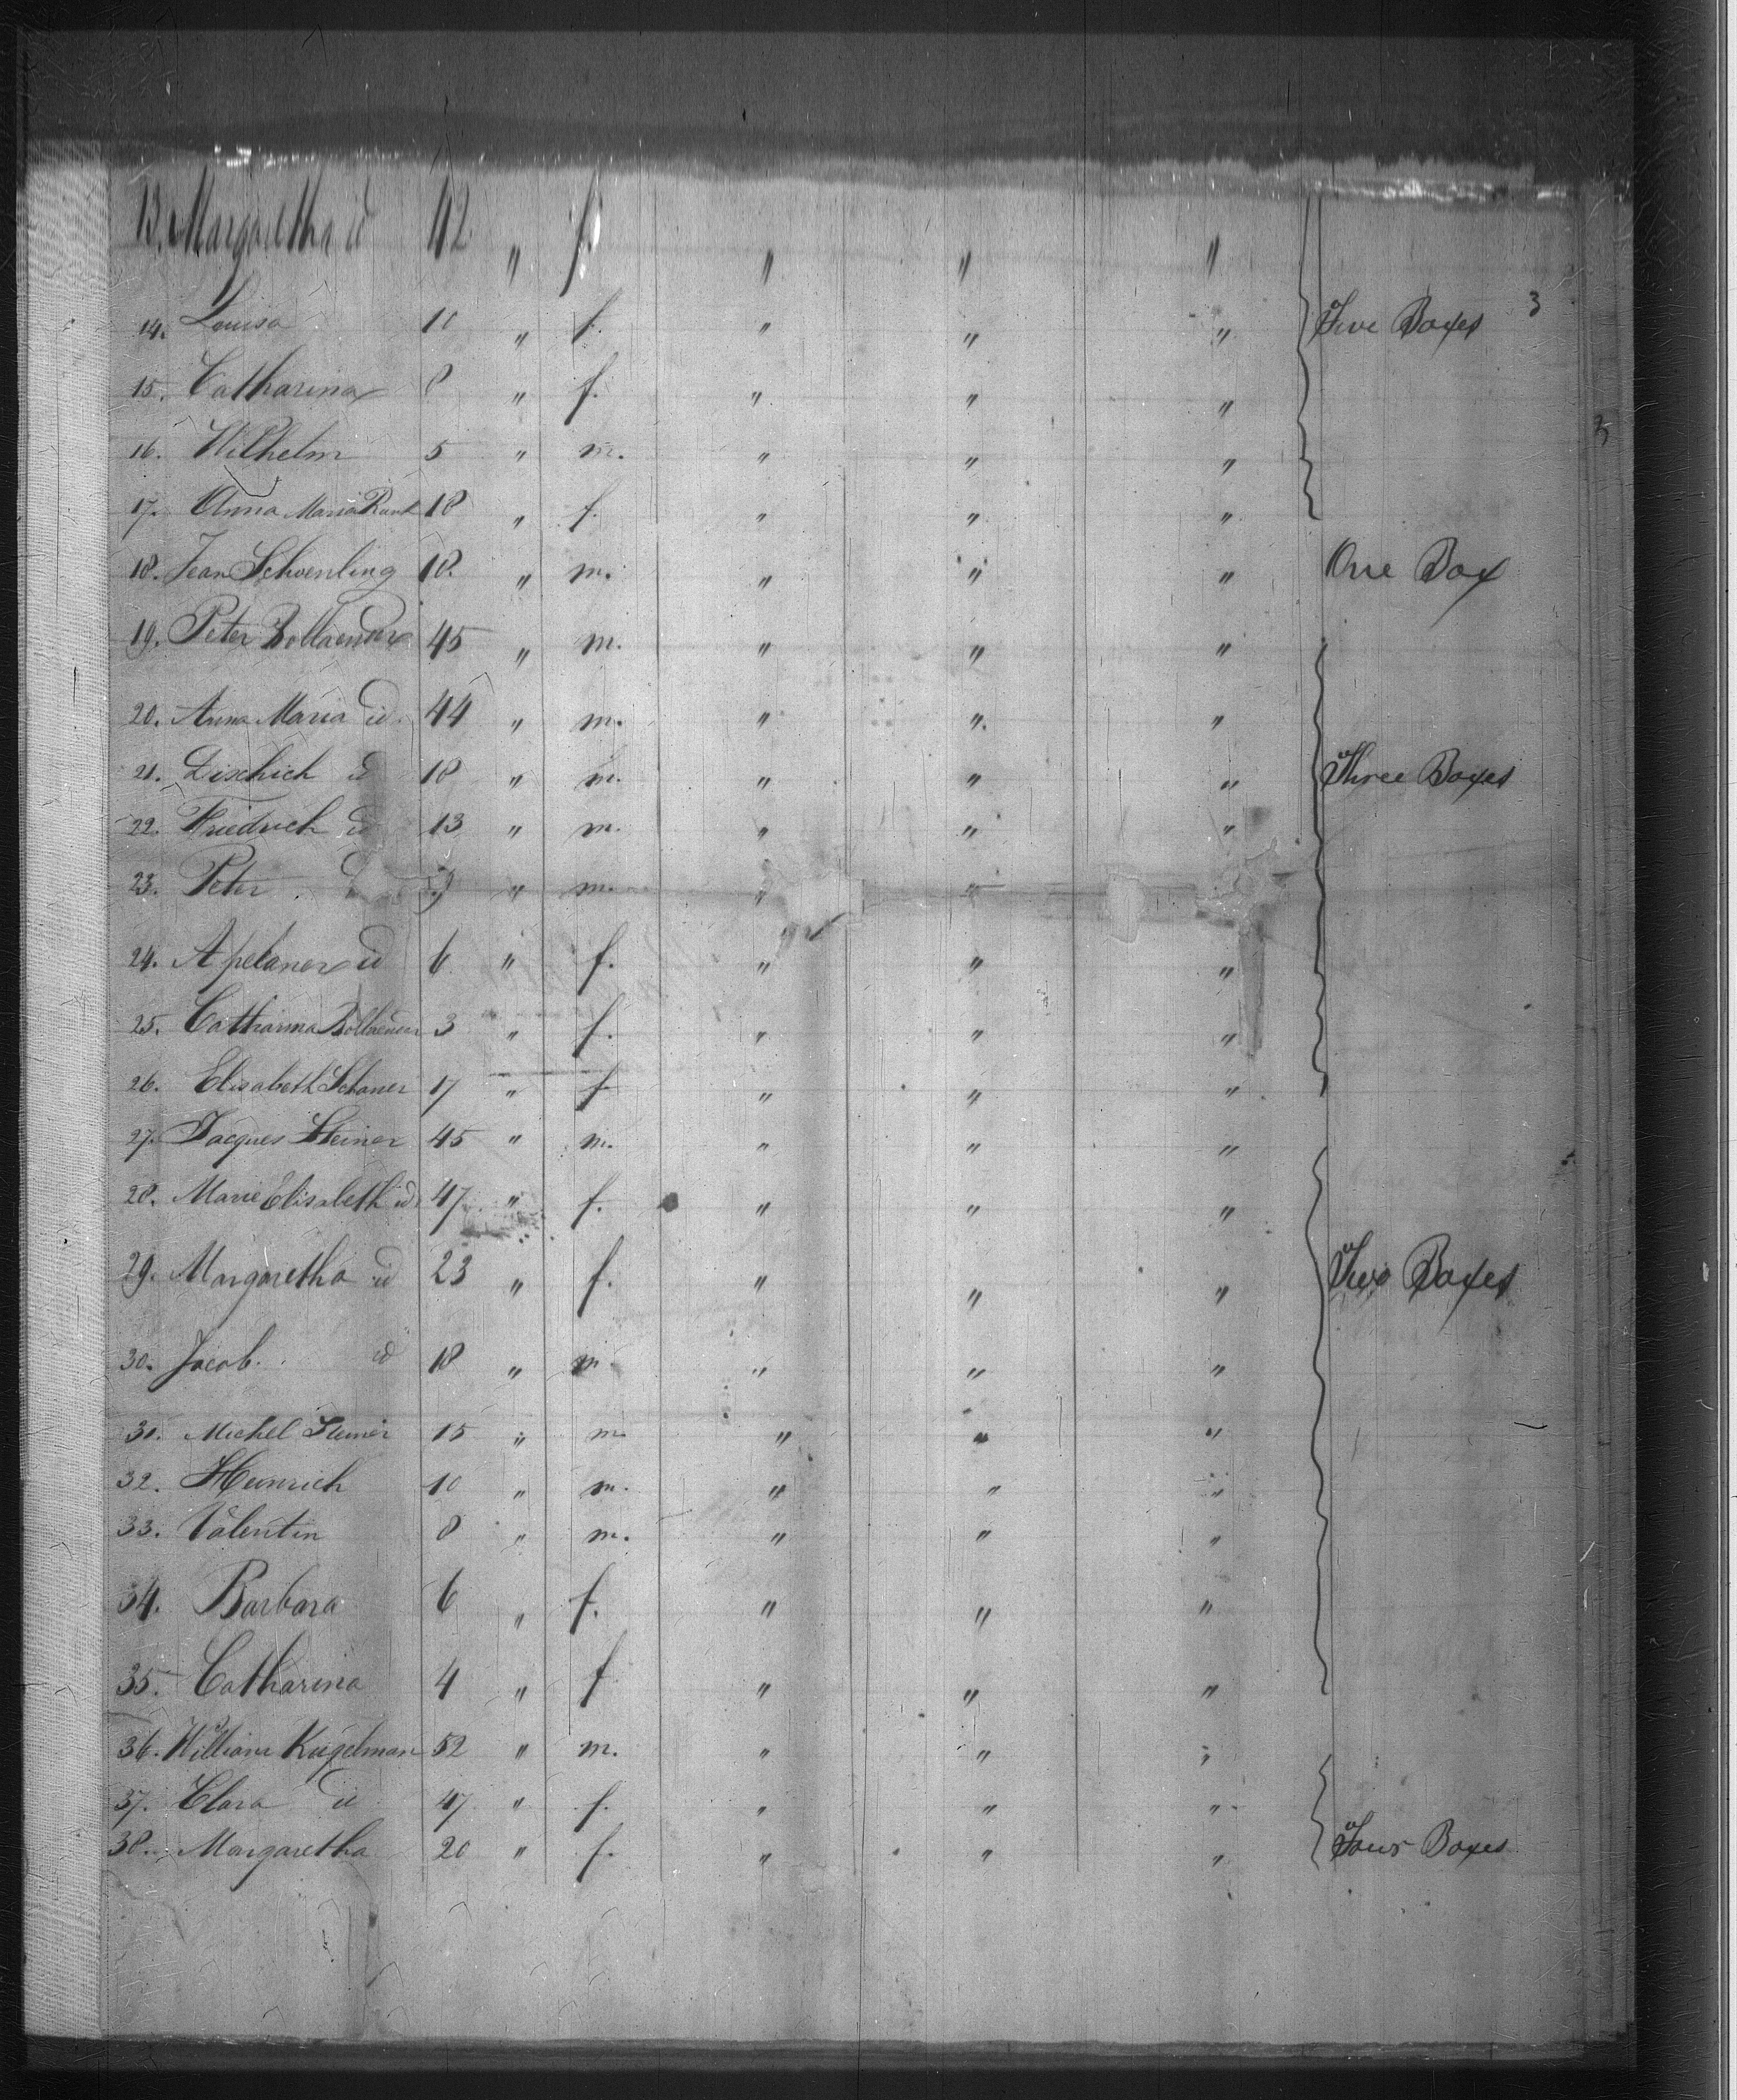 13. Margaretha id 42 " f. " " "
14. Louisa 10 " f. " " " Five Boxes 3
15. Catharina 8 " f. " " "
16. Wilhelm 5 " m. " " "
17. Anna Maria 18 " f. " " "
18. Jean Schoenling 18. " m. " " " One Box
19. Peter 45 " m. " " "
20. Anna Maria id. 44 " m. " " "
21. id 18 " m. " " " Three Boxes
22. Friedrich id 13 " m. " " "
23. Peter 9 " m. " "
24. id 6 " f. " " "
25. Catharina 3 " f. " " "
26. Elisabeth Schaner 17 " f " " "
27. Jacques Steiner 45 " m. " " "
28. Marie Elisabeth id 47 " f. " " "
29. Margaretha id 23 " f. " " " Two Boxes
30. Jacob. id 18 " m " " "
30. Michel Steiner 15 " m. " " "
32. Heinrich 10 " m. " " "
33. Valentin 8 " m. " " "
34. Barbara 6 " f. " " "
35. Catharina 4 " f " " "
36. William Kugelman 52 " m. " " "
37. Clara id 47 " f. " " "
38. Margaretha 20 " f. " " " Four Boxes